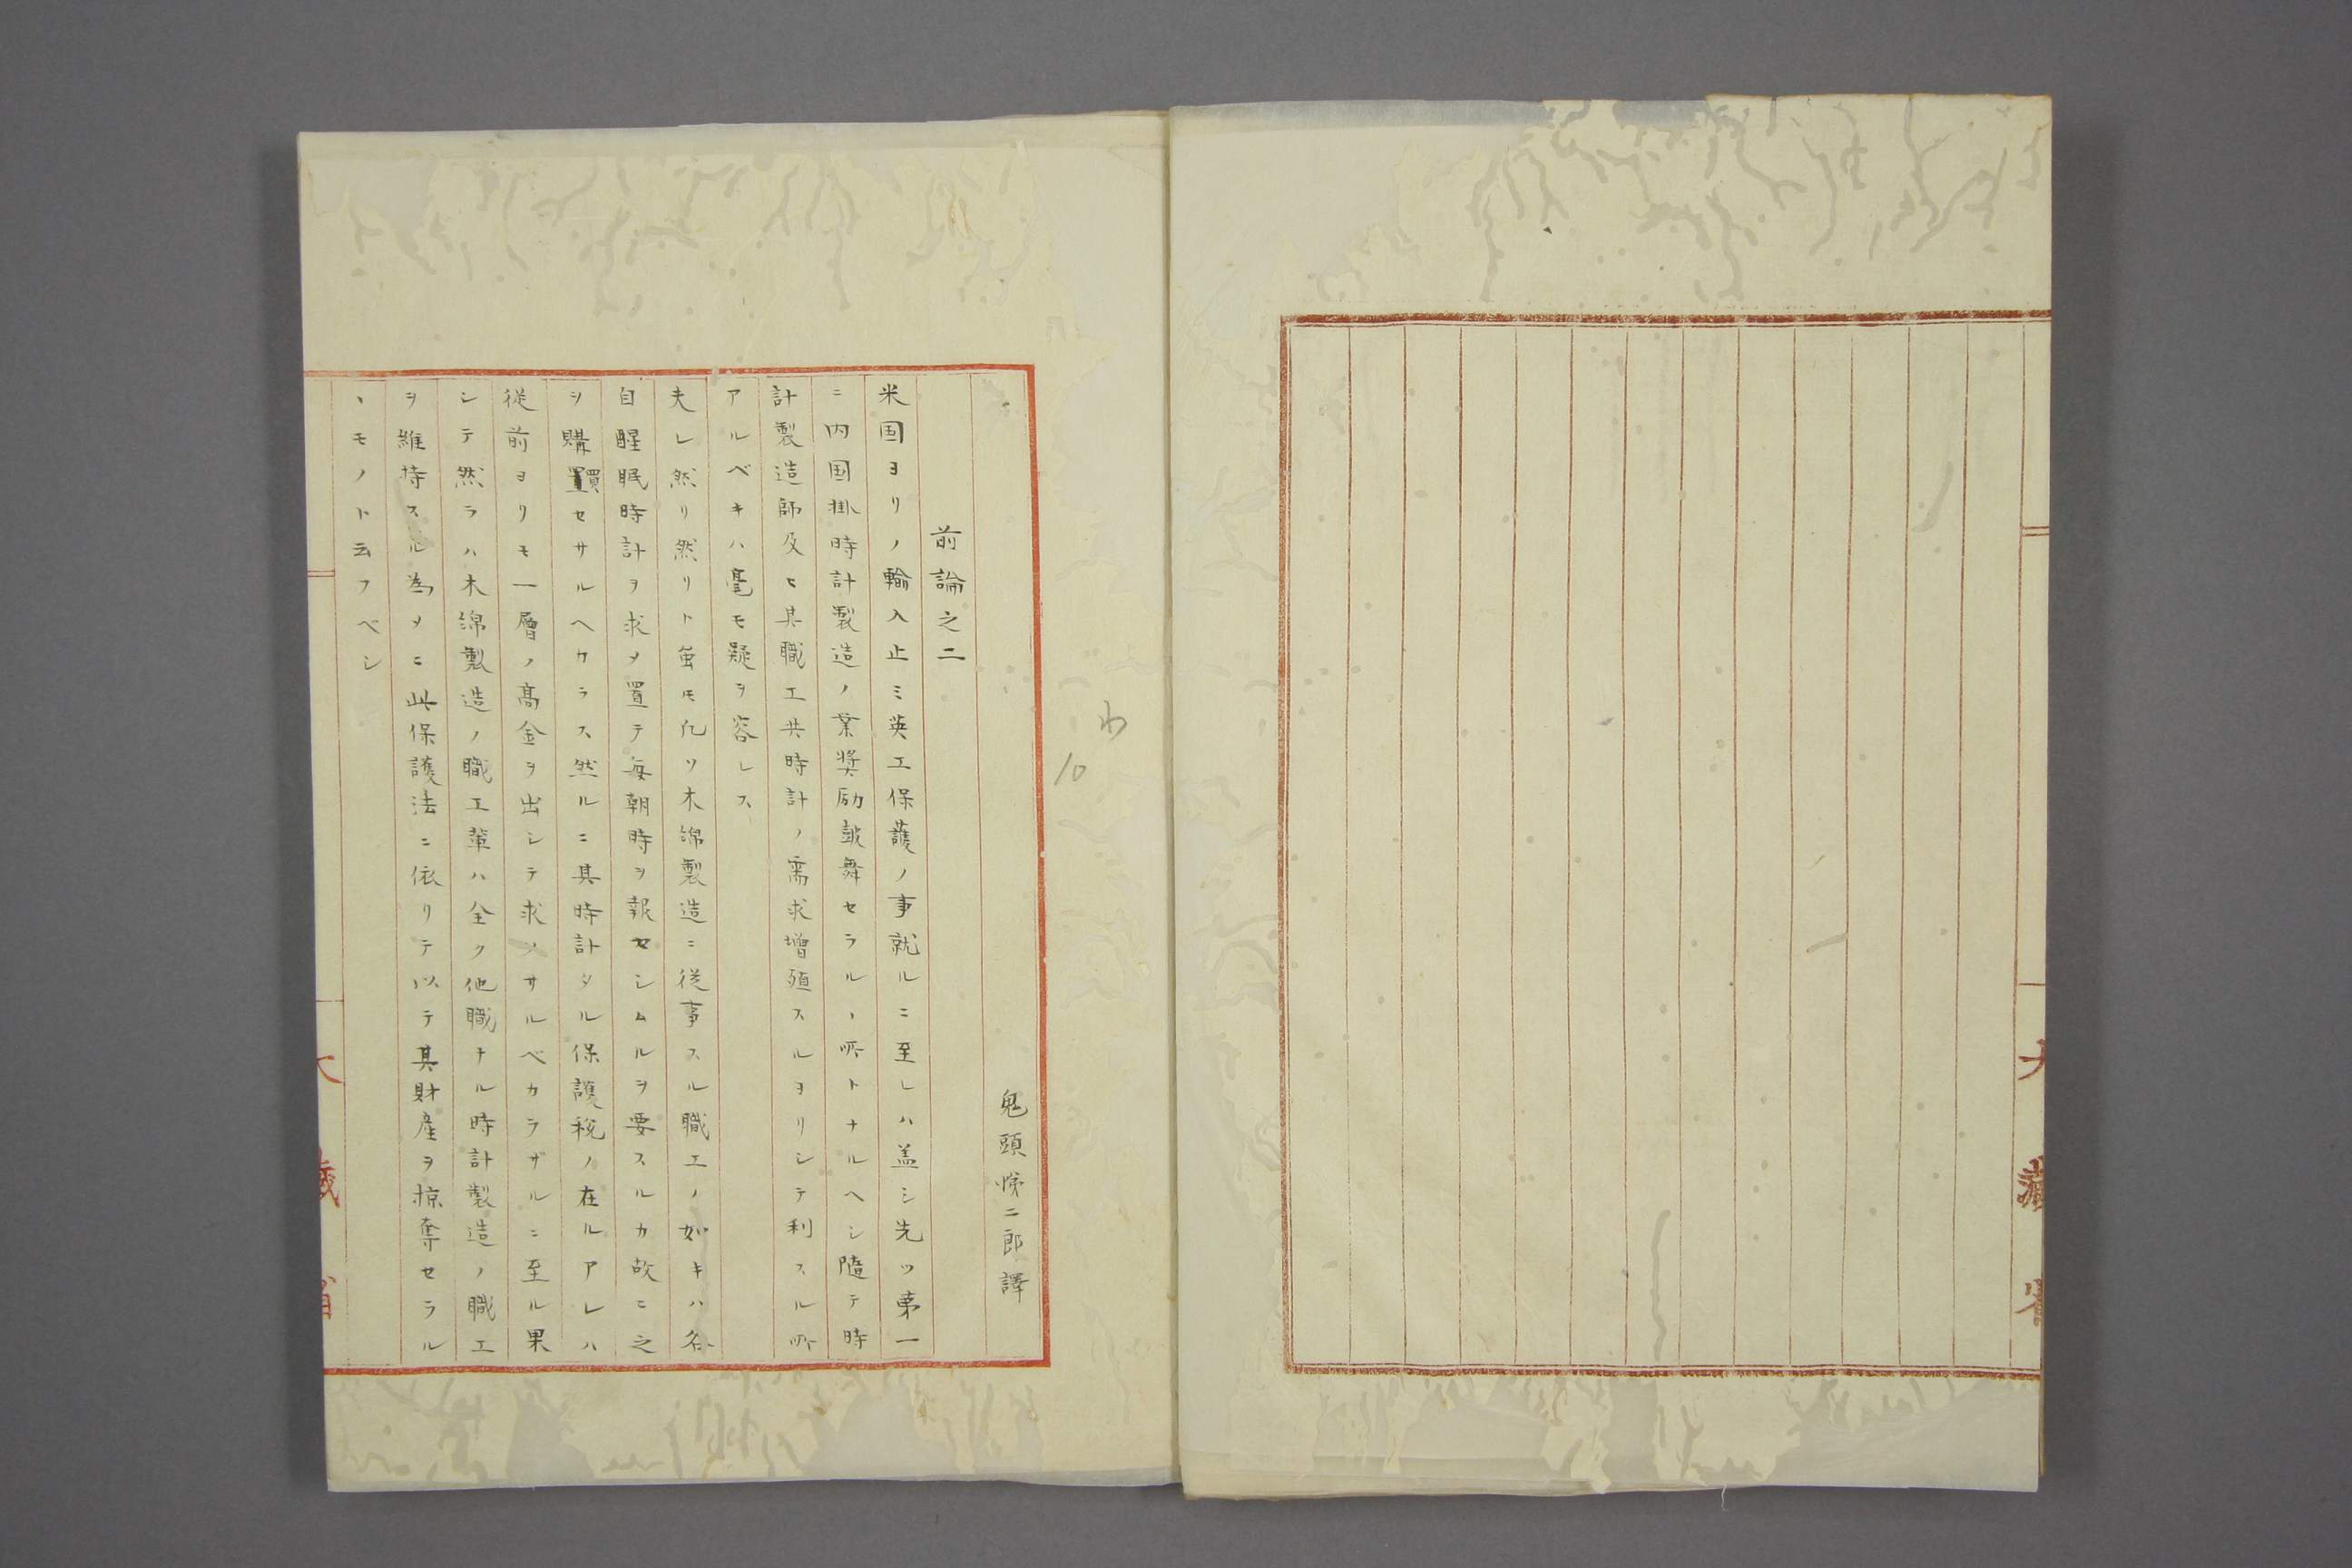 大藏省
わ
10
鬼頭悌二郎譯
前論之二
米国ヨリノ輸入止ミ英工保護ノ事就ルニ至レハ盖シ先ツ第一
ニ内国掛時計製造ノ業奨励皷舞セラルヽ所トナルヘシ隨テ時
計製造師及ヒ其職工共時計ノ需求增殖スルヨリシテ利スル所
アルベキハ毫モ疑ヲ容レス
夫レ然リ然リト虽モ凢ソ木綿製造ニ従事スル職工ノ如キハ各
自醒眠時計ヲ求メ置テ毎朝時ヲ報セシムルヲ要スルカ故ニ之
ヲ購買セサルヘカラス然ルニ其時計タル保護税ノ在ルアレハ
従前ヨリモ一層ノ高金ヲ出シテ求メサルベカラザルニ至ル果
シテ然ラハ木綿製造ノ職工輩ハ全ク他職ナル時計製造ノ職工
ヲ維持スル為メニ此保護法ニ依リテ以テ其財産ヲ掠奪セラル
ヽモノト云フベシ
大藏省